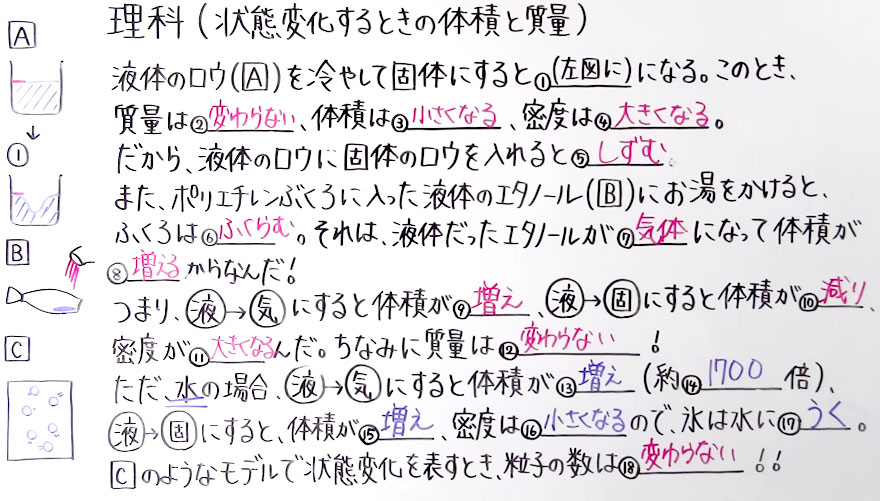 理科(状態変化するときの体積と質量)
A
液体のロウ(A)を冷やして固体にすると①(左図に)になる。このとき、
質量は②変わらない、体積は③小さくなる、密度は④大きくなる。
①
だから、液体のロウに固体のロウを入れると⑤しずむ。
また、ポリエチレンぶくろに入った液体のエタノール(B)にお湯をかけると、
ふくろは⑥ふくらむ。それは、液体だったエタノールが⑦気体になって体積が
B
⑧増えるからなんだ!
つまり、液→気にすると体積が⑨増え、液→固にすると体積が⑩減り、
C
密度が⑪大きくなるんだ。ちなみに質量は⑫変わらない!
ただ、水の場合、液→気にすると体積が⑬増え(約⑭1700倍)、
液→固にすると、体積が⑮増え、密度は⑯小さくなるので、氷は水に⑰うく。
Cのようなモデルで状態変化を表すとき、粒子の数は⑱変わらない!!